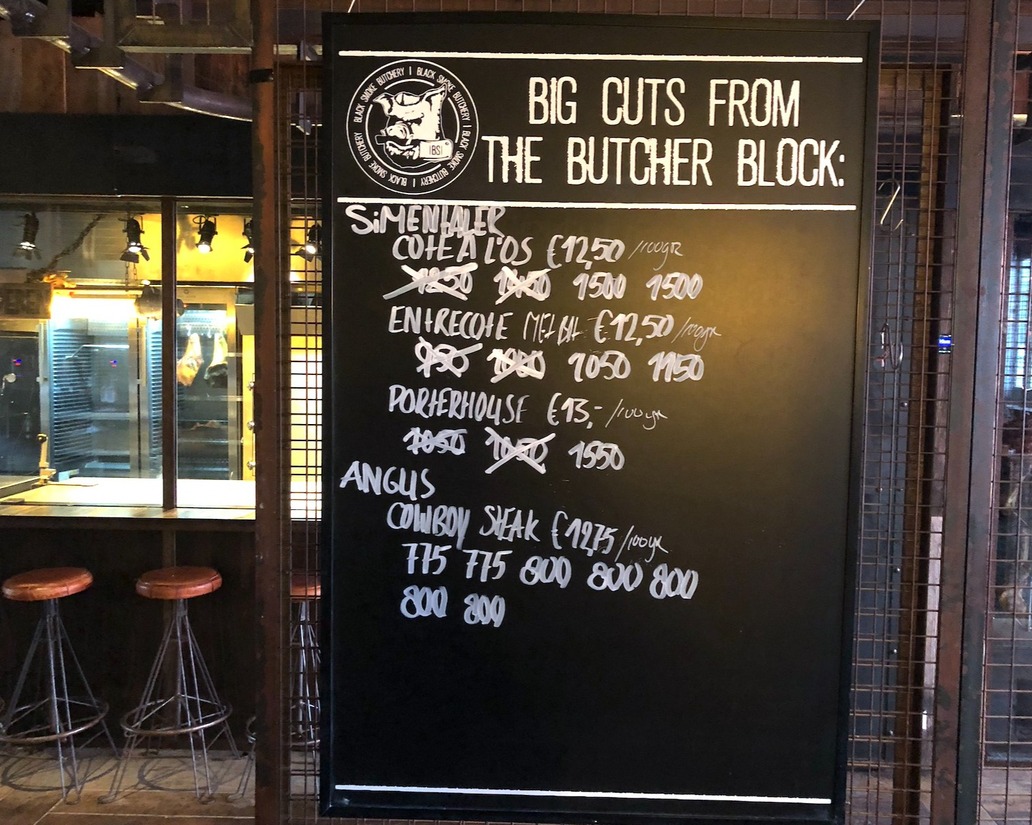 BLACK SMOKE BUTCHERY | BLACK SMOKE BUTCHERY | BLACK SMOKE BUTCHERY | BLACK SMOKE BUTCHERY
BSI
BIG CUTS FROM
THE BUTCHER BLOCK:
SiMENTALER
COTE A L'OS €12,50 /100gr
1250 1450 1500 1500
ENTRECOTE MET €12,50 /100gr
950 1050 1150
PORTERHOUSE €13,- /100gr
1050 1050 1550
ANGUS
COWBOY STEAK €12,75 /100gr
775 775 800 800 800
800 800